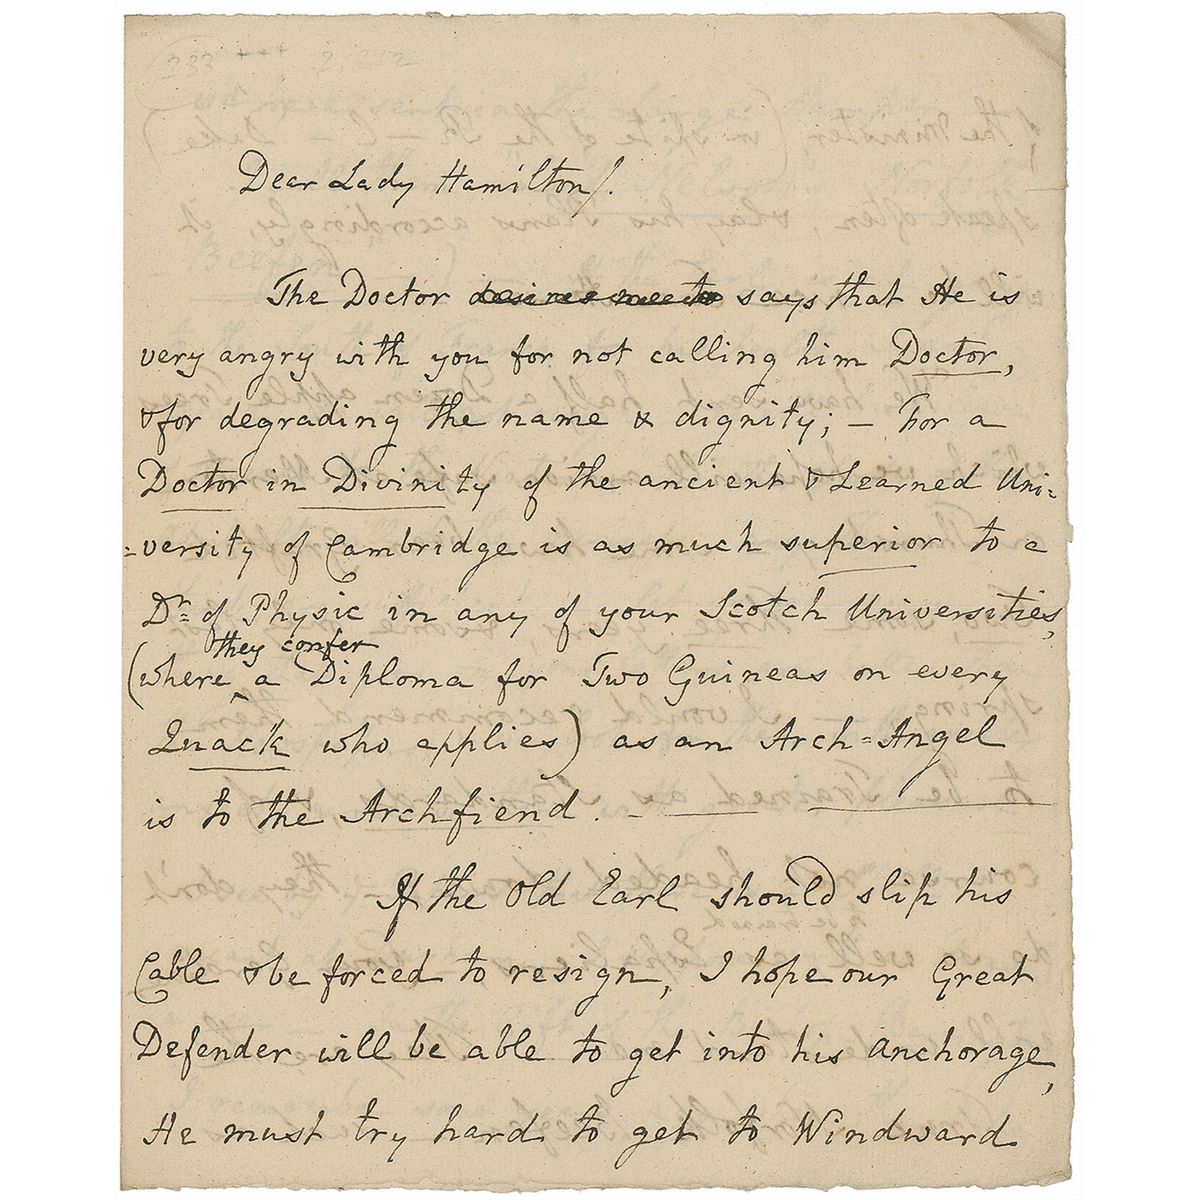 Dear Lady Hamilton/.
The Doctor desires me to says that He is
very angry with you for not calling him Doctor,
& for degrading the name & dignity; – For a
Doctor in Divinity of the ancient & Learned Uni=
=versity of Cambridge is as much superior to a
Dr. of Physic in any of your Scotch Universities,
they confer
(where ^ a Diploma for Two Guineas on every
Quack who applies) as an Arch=Angel
is to the Archfiend. –
If the Old Earl should slip his
Cable & be forced to resign, I hope our Great
Defender will be able to get into his anchorage,
He must try hard to get to Windward